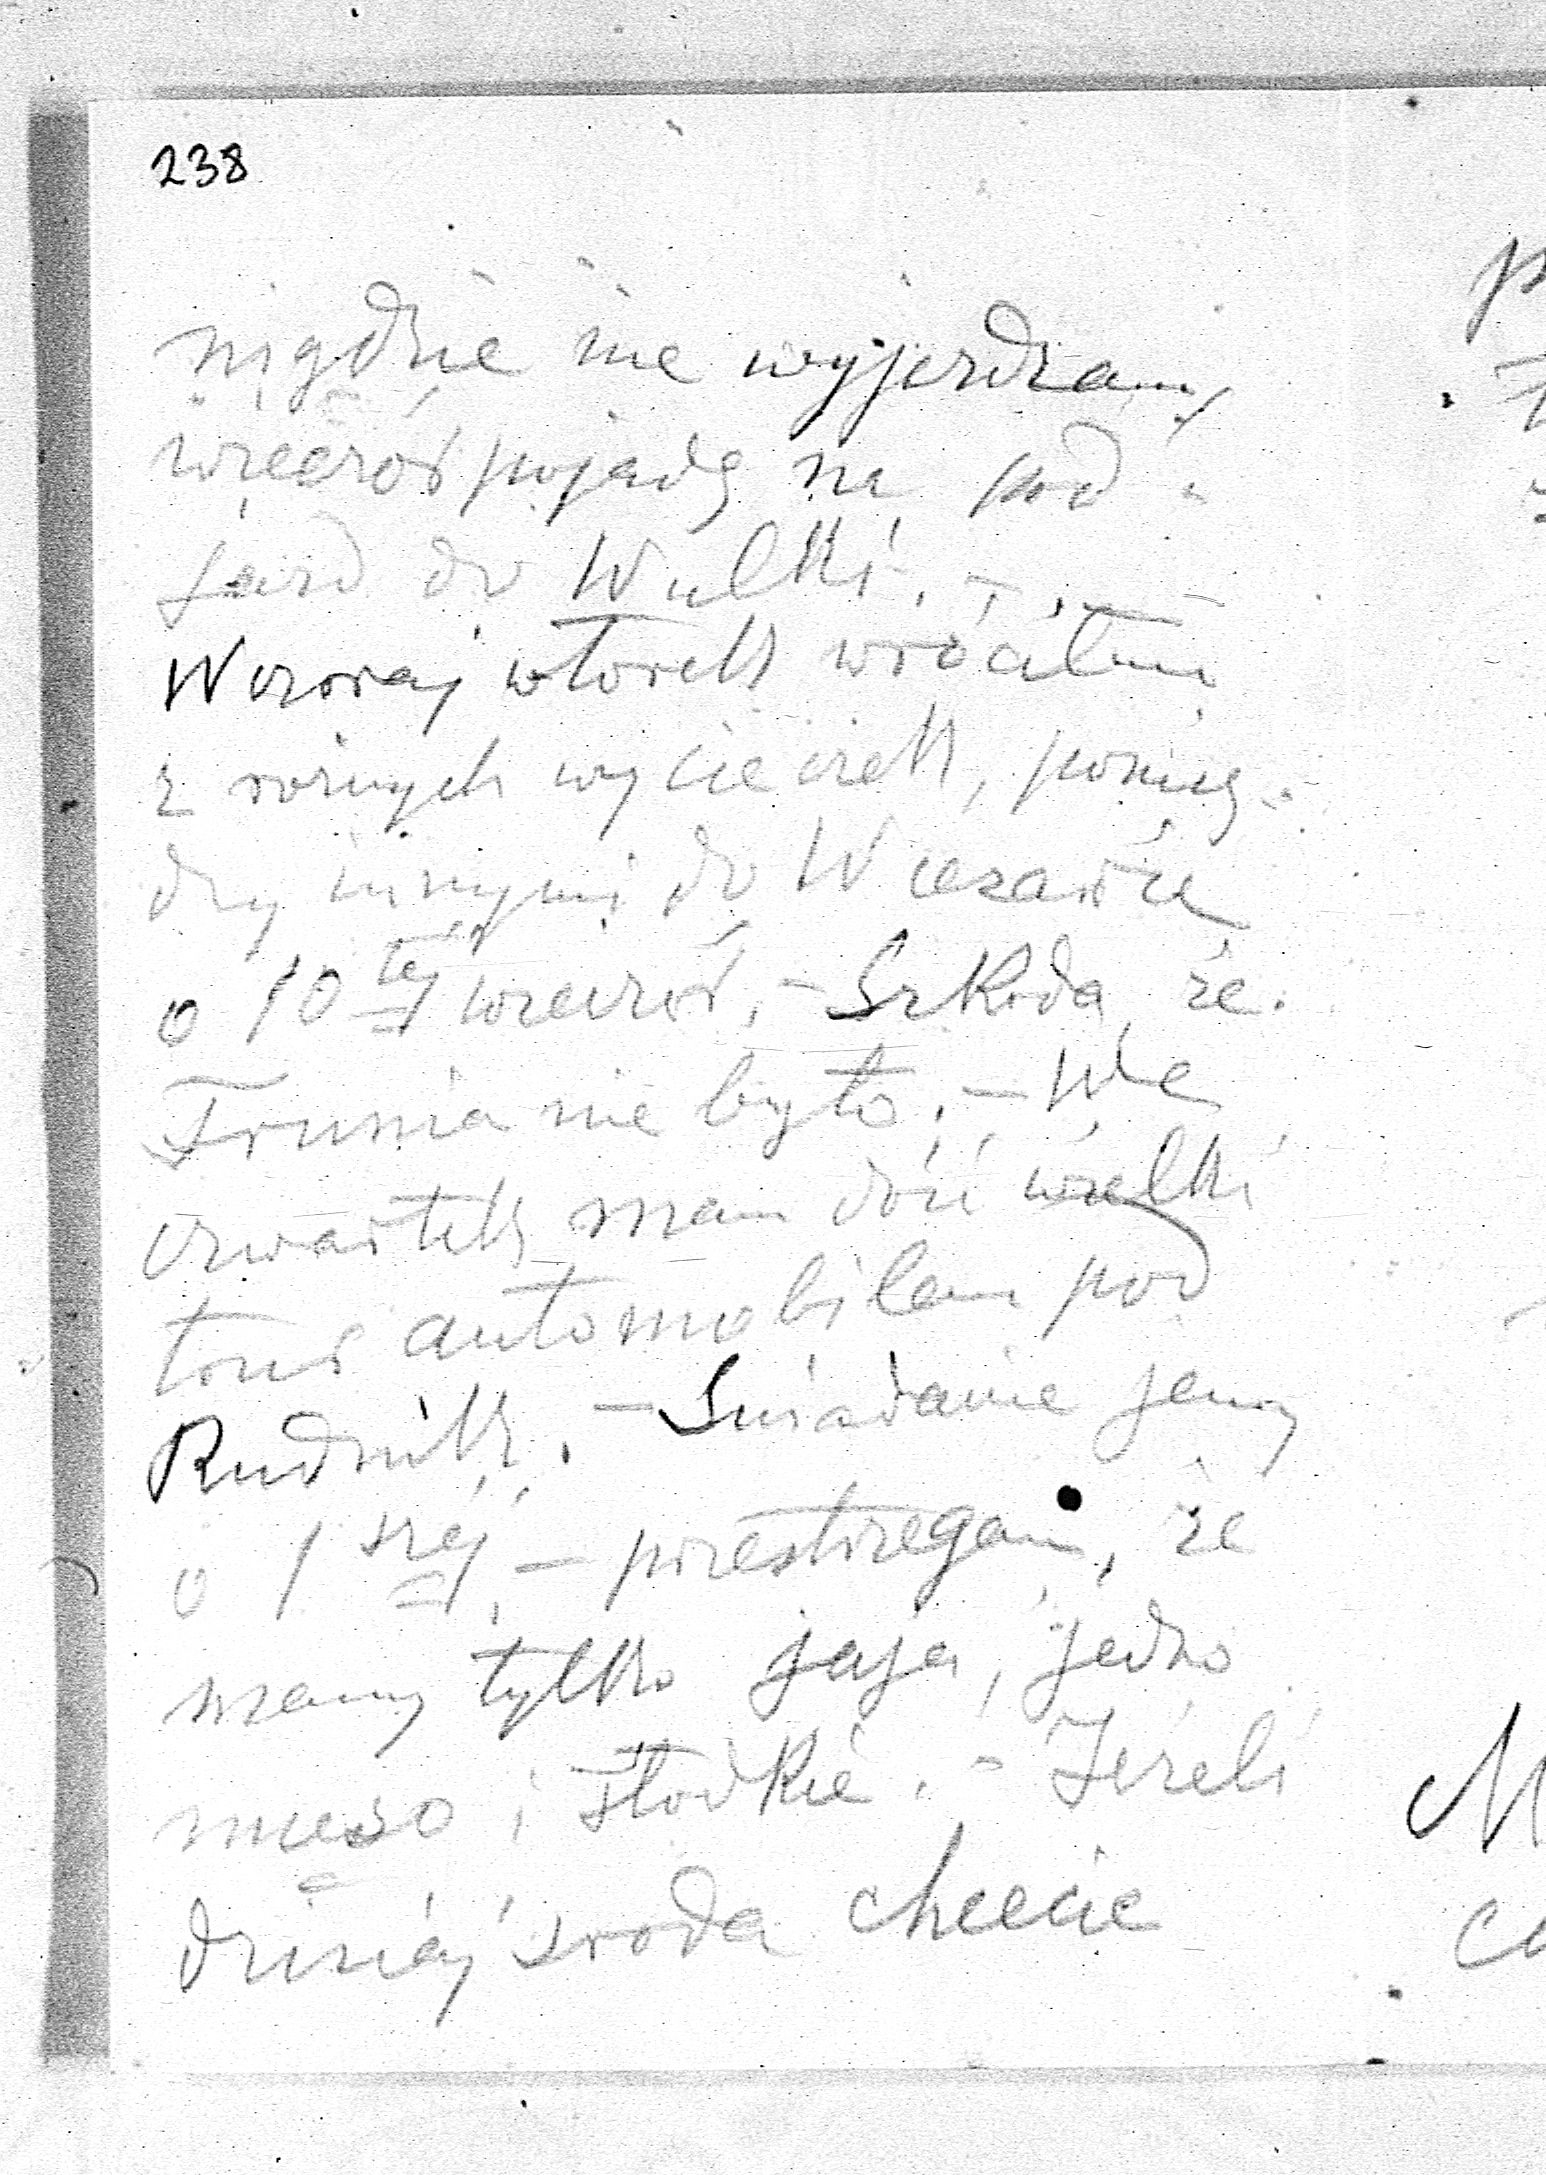 238
nigdzie nie wyjerdzamy
wieczór pojadę na pod-
jazd do Wulki. -
Wczoraj wtorek wróciłem
z różnych wycieczek, pomię-
dzy innymi do
o 10 tej wieczór, - Szkoda, że
Frunia nie było. - We
czwartek mam dość wielki
tour automobilem pod
Rudnik. - Śniadanie jemy
o 1 szej, - przestrzegam, że
mamy tylko jaja, jedno
mięso i słodkie. - Jeżeli
dzisiaj środa chcecie